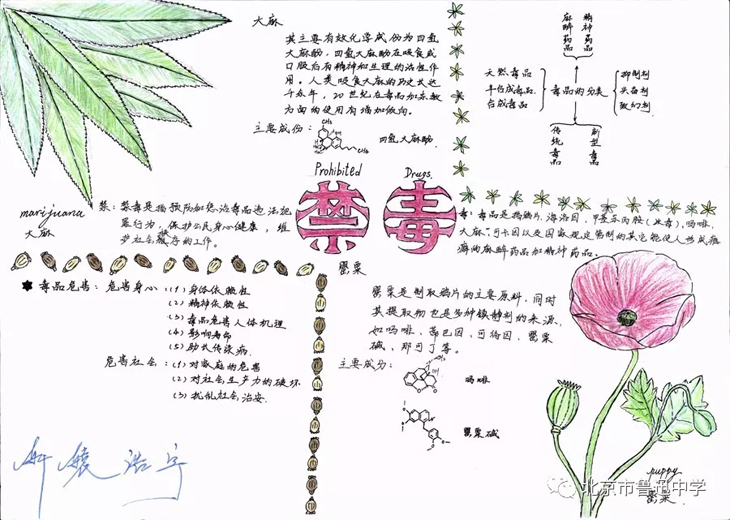 大麻
其主要有效化学成份为四氢
大麻酚，四氢大麻酚在吸食或
口服后有精神和生理的活性作
用。人类吸食大麻的历史长达
千余年，20世纪在毒品和宗教
方面的使用有增加倾向。
主要成份：
CH₃
OH
CH₃
四氢大麻酚
麻醉药品
精神药品
天然毒品
半合成毒品
合成毒品
毒品的分类
抑制剂
兴奋剂
致幻剂
传统毒品
新型毒品
Prohibited Drugs.
禁毒
marijuana
大麻
禁：禁毒是指预防和惩治毒品违法犯
罪行为，保护公民身心健康，维
护社会秩序的工作。
毒：毒品是指鸦片、海洛因、甲基苯丙胺（冰毒）、吗啡、
大麻、可卡因以及国家规定管制的其它能使人形成瘾
癖的麻醉药品和精神药品。
毒品危害：危害身心：(1)身体依赖性
(2)精神依赖性
(3)毒品危害人体机理
(4)影响寿命
(5)助长传染病
危害社会：(1)对家庭的危害
(2)对社会生产力的破坏
(3)扰乱社会治安.
罂粟
罂粟是制取鸦片的主要原料，同时
其提取物也是多种镇静剂的来源，
如吗啡、蒂巴因、可待因、罂粟
碱、那可丁等。
主要成分：
吗啡
罂粟碱
浩宇
puppy
罂粟
北京市鲁迅中学